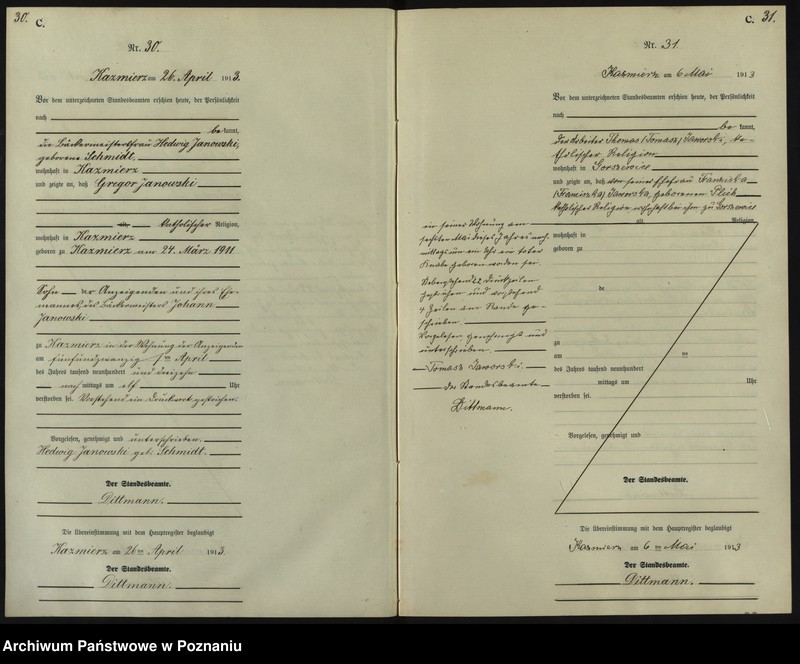 30.
C.
Nr. 30.
Kazmierz am 26. April 1913.
Vor dem unterzeichneten Standesbeamten erschien heute, der Persönlichkeit
nach
be kannt,
die Bäckermeistersfrau Hedwig Janowski,
geborene Schmidt,
wohnhaft in Kazmierz
und zeigte an, daß Gregor Janowski
alt, katholischer Religion,
wohnhaft in Kazmierz
geboren zu Kazmierz am 24. März 1911
Sohn der Anzeigenden und ihres Ehe-
mannes, des Bäckermeisters Johann
Janowski
zu Kazmierz in der Wohnung der Anzeigenden
am fünfundzwanzigsten April
des Jahres tausend neunhundert und dreizehn
nach mittags um elf Uhr
verstorben sei. Vorstehend ein Druckwort gestrichen.
Vorgelesen, genehmigt und unterschrieben.
Hedwig Janowski geb. Schmidt.
Der Standesbeamte.
Dittmann.
Die Übereinstimmung mit dem Hauptregister beglaubigt
Kazmierz am 26ten April 1913.
Der Standesbeamte.
Dittmann.
C. 31.
Nr. 31.
Kazmierz am 6 Mai 1913
Vor dem unterzeichneten Standesbeamten erschien heute, der Persönlichkeit
nach
be kannt,
der Arbeiter Thomas (Tomasz) Jaworski, ka-
tholischer Religion
wohnhaft in Gorszewice
und zeigte an, daß von seiner Ehefrau Franziska
(Franciszka) Jaworska, geborenen
katholischer Religion wohnhaft bei ihm zu Gorszewice
alt Religion,
in seiner Wohnung am
sechsten Mai dieses Jahres nach
mittags um ein Uhr ein toter
Knabe geboren worden sei.
Nebenstehend 22 Druckzeilen
gestrichen und vorstehend
4 Zeilen am Rande ge-
schrieben.
Vorgelesen genehmigt und
unterschrieben.
Tomasz Jaworski.
der Standesbeamte
Dittmann.
wohnhaft in
geboren zu
de
zu
am ten
des Jahres tausend neunhundert
mittags um Uhr
verstorben sei.
Vorgelesen, genehmigt und
Der Standesbeamte.
Die Übereinstimmung mit dem Hauptregister beglaubigt
Kazmierz am 6ten Mai 1913
Der Standesbeamte.
Dittmann.
Archiwum Państwowe w Poznaniu